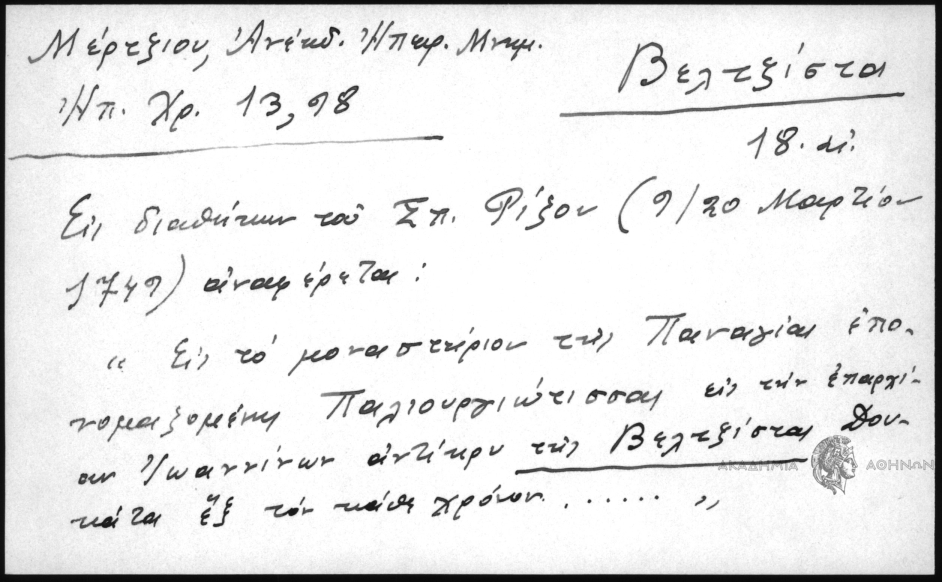 Μέρτζιου, Ἀνέκδ. Ἠπειρ. Μνημ.
Ἠπ. Χρ. 13, 98
Βελτζίστα
18. αἰ.
Εἰς διαθήκην τοῦ Σπ. Ρίζου (9/20 Μαρτίου
1749) ἀναφέρεται:
„ Εἰς τό μοναστήριον τῆς Παναγίας ἐπο-
νομαζομένης Παλιουργιώτισσας εἰς τήν ἐπαρχί-
αν Ἰωαννίνων ἀντίκρυ τῆς Βελτζίστας Δου-
κάτα ἕξ τόν κάθε χρόνον...... „
ΑΚΑΔΗΜΙΑ ΑΘΗΝΩΝ